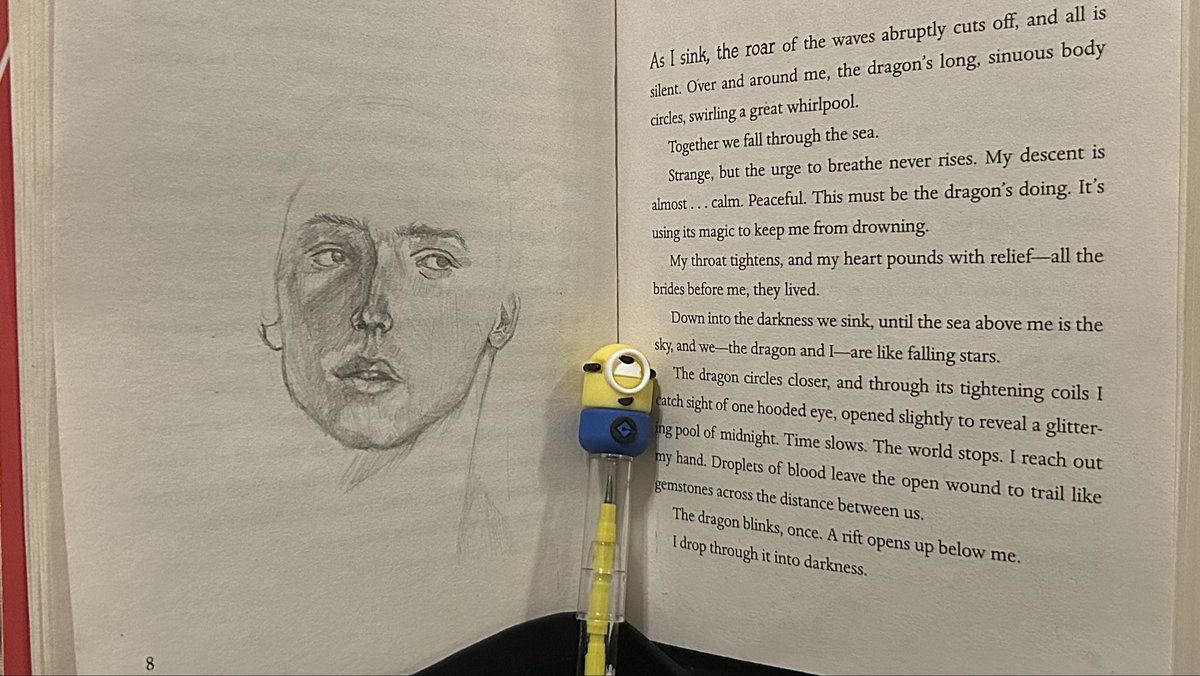 As I sink, the roar of the waves abruptly cuts off, and all is
silent. Over and around me, the dragon's long, sinuous body
circles, swirling a great whirlpool.
Together we fall through the sea.
Strange, but the urge to breathe never rises. My descent is
almost . . . calm. Peaceful. This must be the dragon's doing. It's
using its magic to keep me from drowning.
My throat tightens, and my heart pounds with relief—all the
brides before me, they lived.
Down into the darkness we sink, until the sea above me is the
sky, and we—the dragon and I—are like falling stars.
The dragon circles closer, and through its tightening coils I
catch sight of one hooded eye, opened slightly to reveal a glitter-
ing pool of midnight. Time slows. The world stops. I reach out
my hand. Droplets of blood leave the open wound to trail like
gemstones across the distance between us.
The dragon blinks, once. A rift opens up below me.
I drop through it into darkness.
8